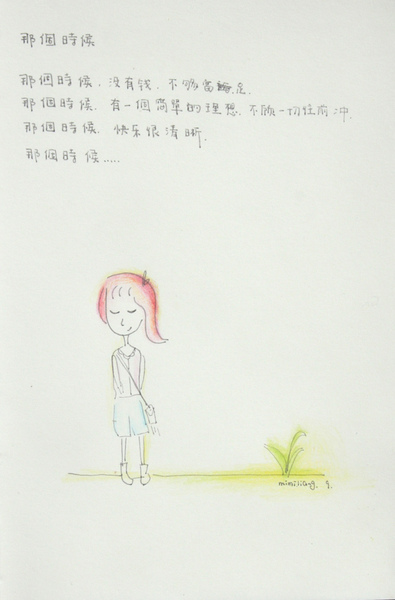 那個時候
那個時候.没有钱.不够富饒足.
那個時候.有一個简單的理想.不顾一切往前冲.
那個時候.快乐很清晰.
那個時候.....
mimiliang.